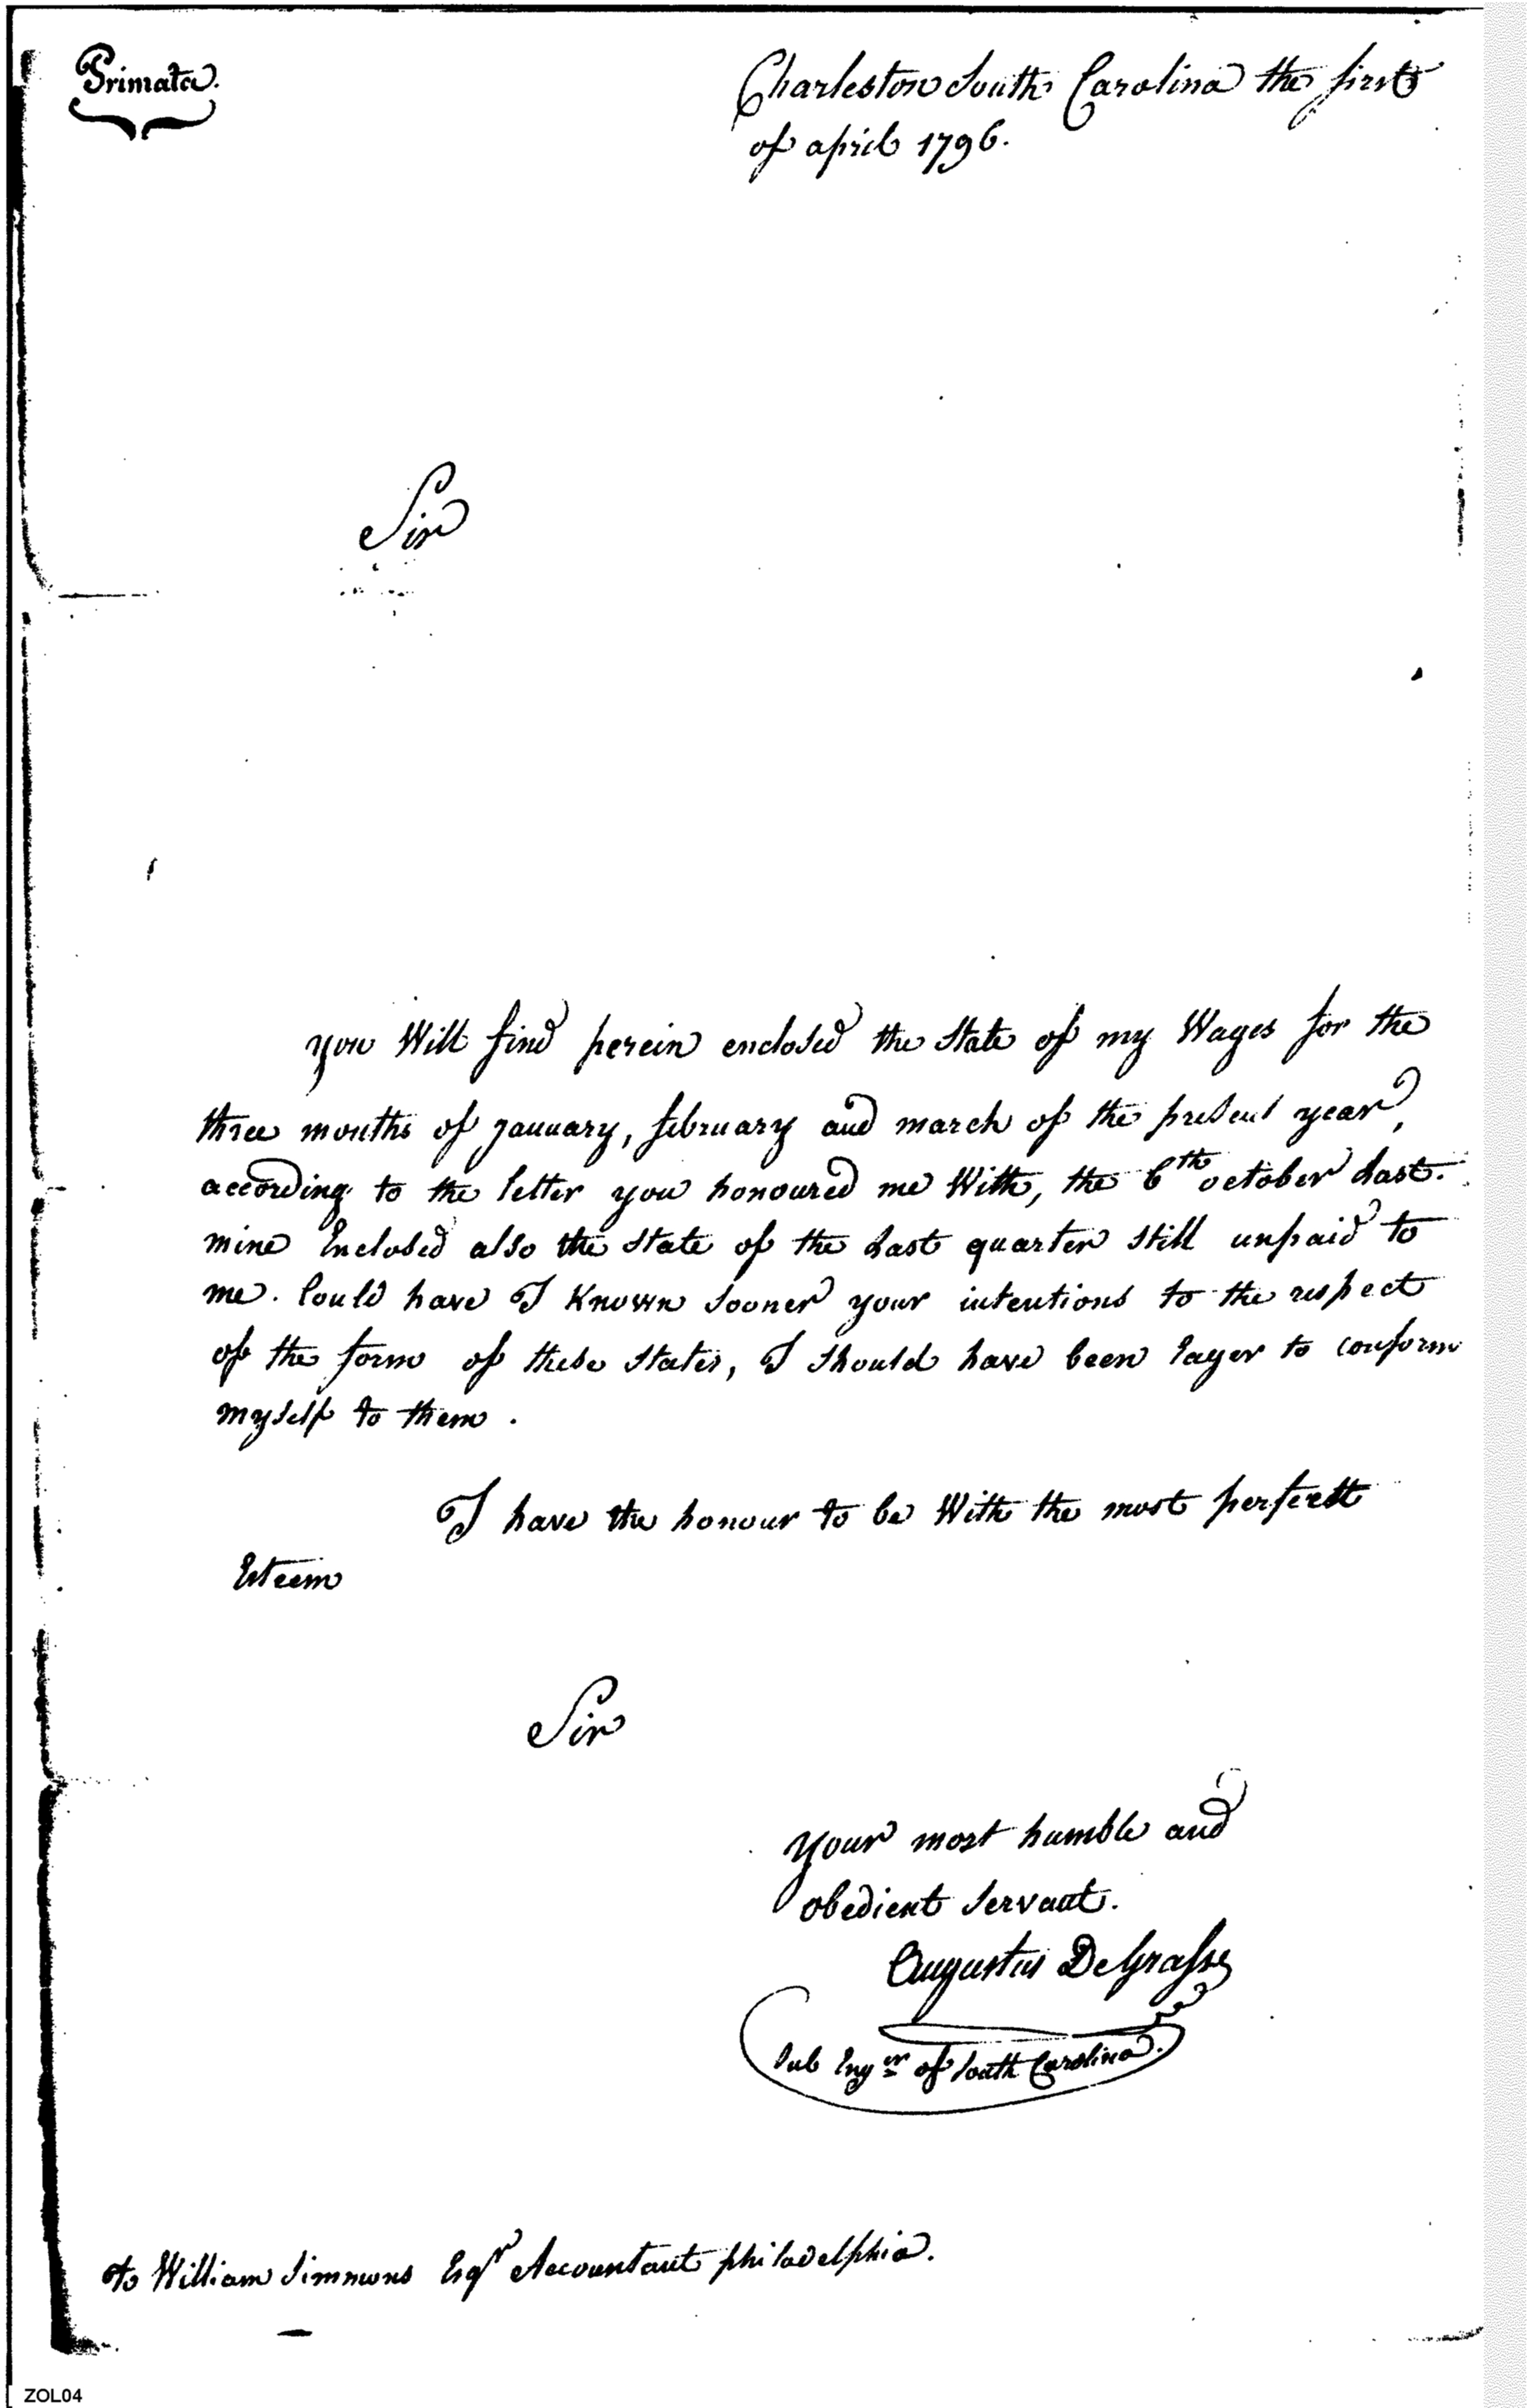 Primata.
Charleston South Carolina the first
of april 1796.
Sir
you Will find herein enclosed the State of my Wages for the
three months of january, february and march of the present year,
according to the letter you honoured me With, the 6th october Last.
mine Enclosed also the State of the Last quarter Still unpaid to
me. Could have I Known Sooner your intentions to the respect
of the form of these States, I Should have been Eager to conform
mySelf to them.
I have the honour to be With the most perfectt
Esteem
Sir
your most humble and
obedient Servant.
Augustus DeGrasse
Sub Enger of South Carolina.
To William Simmons Esqr Accountant philadelphia.
ZOL04